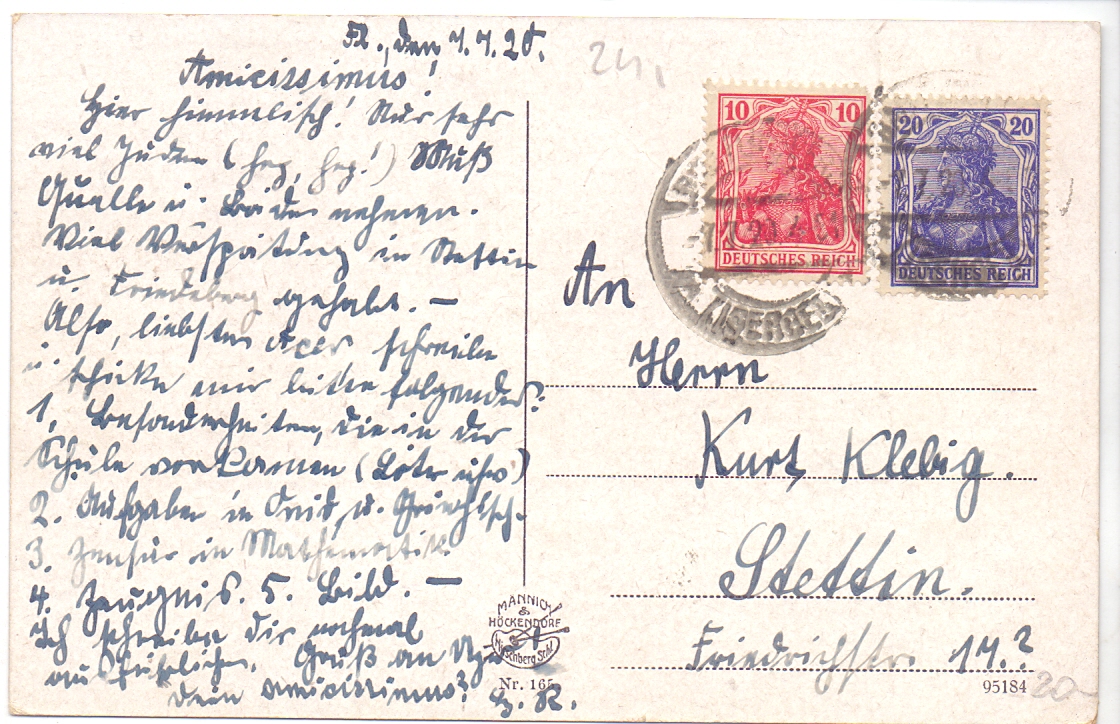 Fl., den 7.7.20.
Amicissimus!
Hier himmlisch! Nur sehr
viel Juden (hep, hep!) Muß
Quelle u. Bäder nehmen.
Viel Verspätung in Stettin
u. Friedeberg gehabt. —
Also, liebster schreibe
u. schicke mir bitte folgendes:
1. Besonderheiten, die in der
Schule vorkamen (Löter usw)
2. Aufgaben in u. Griechisch.
3. Zensur in Mathematik.
4. Zeugnis. 5. Bild. —
Ich schreibe dir nochmal
ausführlicher. Gruß an
Dein amicissimus
24,
10 10
DEUTSCHES REICH
20 20
DEUTSCHES REICH
An
Herrn
Kurt Klebig.
Stettin.
Friedrichstr. 14.?
MANNICH
&
HÖCKENDORF
Hirschberg Schl.
Nr. 165
95184
20-